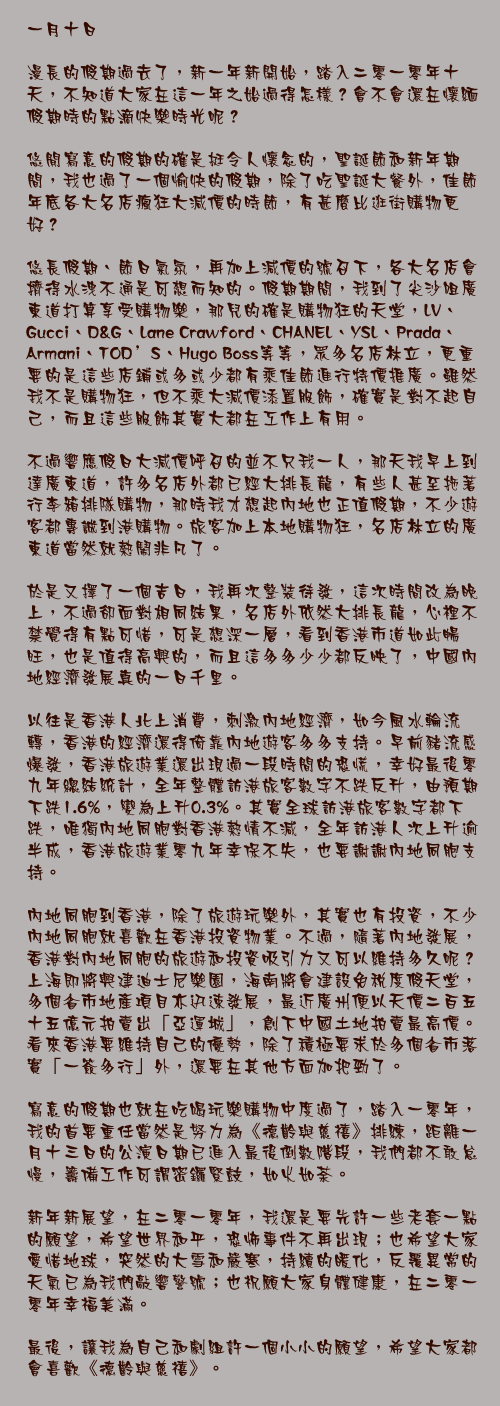 一月十日
漫長的假期過去了，新一年新開始，踏入二零一零年十
天，不知道大家在這一年之始過得怎樣？會不會還在懷緬
假期時的點滴快樂時光呢？
悠閒寫意的假期的確是挺令人懷念的，聖誕節和新年期
間，我也過了一個愉快的假期，除了吃聖誕大餐外，佳節
年底各大名店瘋狂大減價的時節，有甚麼比逛街購物更
好？
悠長假期、節日氣氛，再加上減價的號召下，各大名店會
擠得水洩不通是可想而知的。假期期間，我到了尖沙咀廣
東道打算享受購物樂，那兒的確是購物狂的天堂，LV、
Gucci、D&G、Lane Crawford、CHANEL、YSL、Prada、
Armani、TOD’S、Hugo Boss等等，眾多名店林立，更重
要的是這些店鋪或多或少都有乘佳節進行特價推廣。雖然
我不是購物狂，但不乘大減價添置服飾，確實是對不起自
己，而且這些服飾其實大都在工作上有用。
不過響應假日大減價呼召的並不只我一人，那天我早上到
達廣東道，許多名店外都已經大排長龍，有些人甚至拖著
行李箱排隊購物，那時我才想起內地也正值假期，不少遊
客都專誠到港購物。旅客加上本地購物狂，名店林立的廣
東道當然就熱鬧非凡了。
於是又擇了一個吉日，我再次整裝待發，這次時間改為晚
上，不過卻面對相同結果，名店外依然大排長龍，心裡不
禁覺得有點可惜，可是想深一層，看到香港市道如此暢
旺，也是值得高興的，而且這多多少少都反映了，中國內
地經濟發展真的一日千里。
以往是香港人北上消費，刺激內地經濟，如今風水輪流
轉，香港的經濟還得倚靠內地遊客多多支持。早前豬流感
爆發，香港旅遊業還出現過一段時間的恐慌，幸好最後零
九年總結統計，全年整體訪港旅客數字不跌反升，由預期
下跌1.6%，變為上升0.3%。其實全球訪港旅客數字都下
跌，唯獨內地同胞對香港熱情不減，全年訪港人次上升逾
半成，香港旅遊業零九年幸保不失，也要謝謝內地同胞支
持。
內地同胞到香港，除了旅遊玩樂外，其實也有投資，不少
內地同胞就喜歡在香港投資物業。不過，隨著內地發展，
香港對內地同胞的旅遊和投資吸引力又可以維持多久呢？
上海即將興建迪士尼樂園，海南將會建設免稅度假天堂，
多個省市地產項目亦迅速發展，最近廣州便以天價二百五
十五億元拍賣出「亞運城」，創下中國土地拍賣最高價。
看來香港要維持自己的優勢，除了積極要求於多個省市落
實「一簽多行」外，還要在其他方面加把勁了。
寫意的假期也就在吃喝玩樂購物中度過了，踏入一零年，
我的首要重任當然是努力為《德齡與慈禧》排練，距離一
月十三日的公演日期已進入最後倒數階段，我們都不敢怠
慢，籌備工作可謂密鑼緊鼓，如火如荼。
新年新展望，在二零一零年，我還是要先許一些老套一點
的願望，希望世界和平，恐怖事件不再出現；也希望大家
愛惜地球，突然的大雪和嚴寒，持續的暖化，反覆異常的
天氣已為我們敲響警號；也祝願大家身體健康，在二零一
零年幸福美滿。
最後，讓我為自己和劇組許一個小小的願望，希望大家都
會喜歡《德齡與慈禧》。